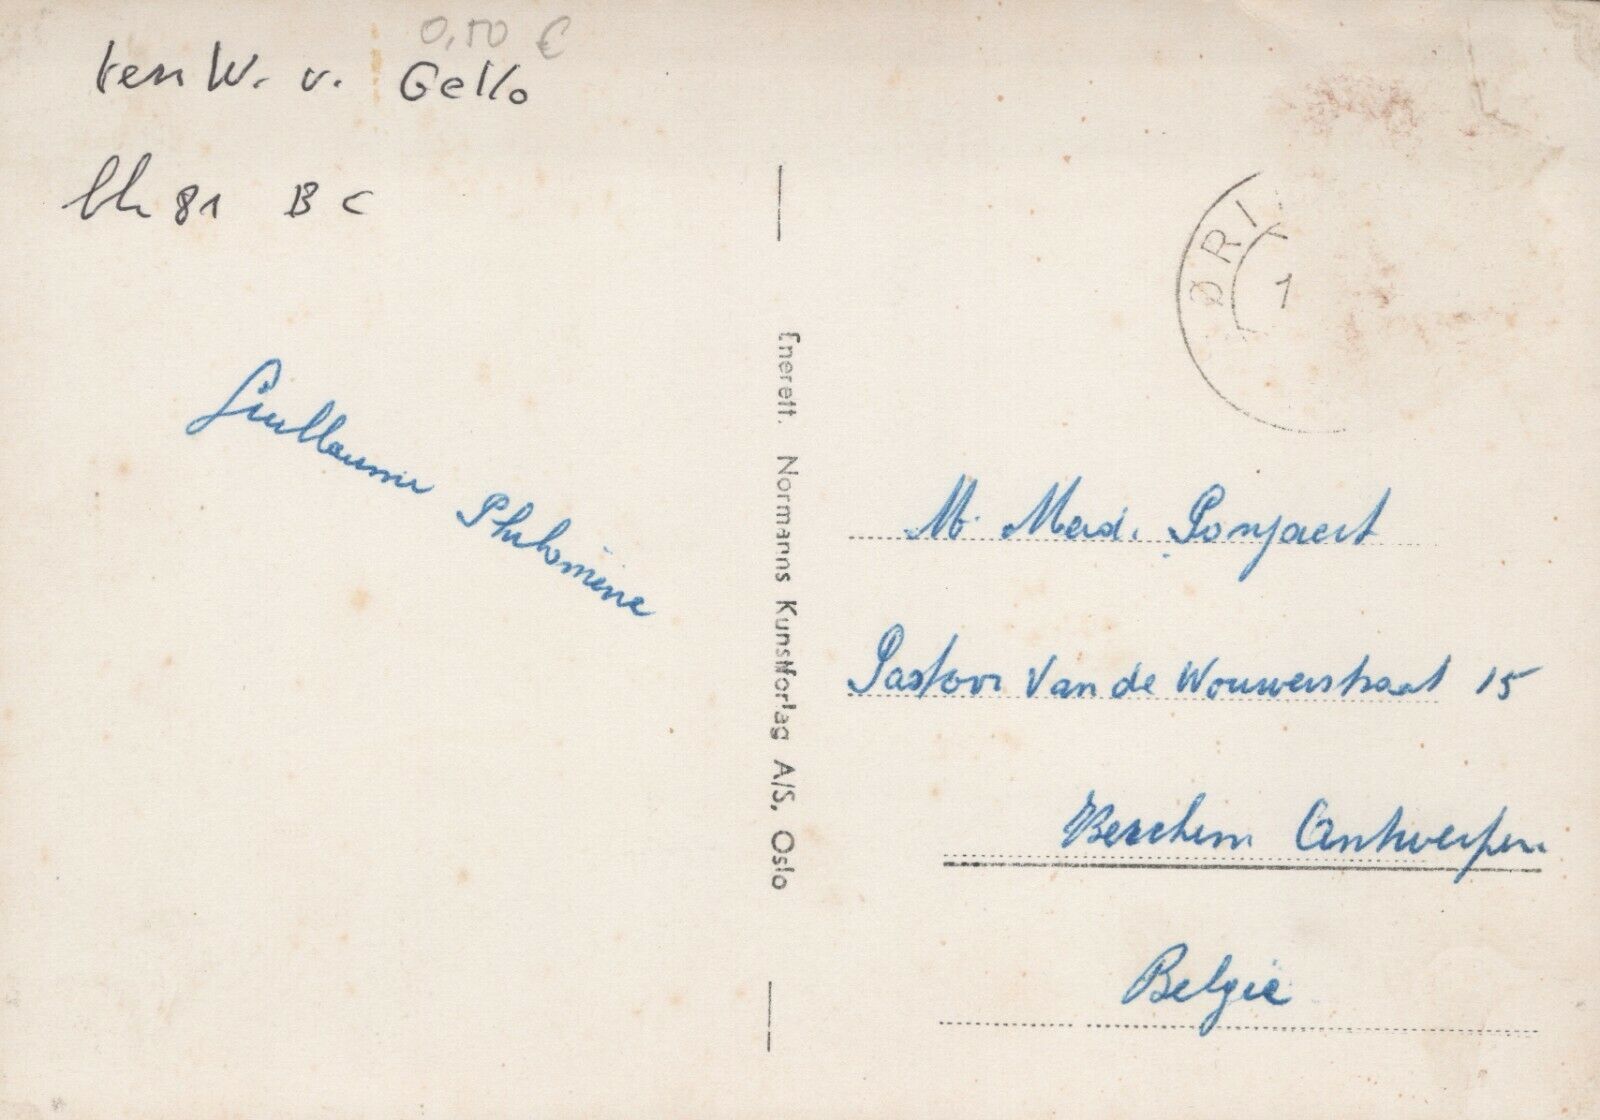 0,50 €
ten W. v. Gello
bk 81 B C
Guillaume Philomène
Enerett. Normanns Kunstforlag A/S, Oslo
ØRI
1
M. Mad. Ponjaert
Pastoor Van de Wouwerstraat 15
Berchem Antwerpen
België